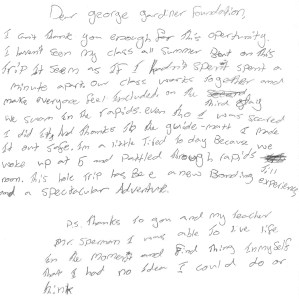 Dear george gardner foundation,
I can't thank you enough for this oportunity.
I haven't seen my class all summer but on this
trip it seem as if I hadn't spent a
minute apart. Our class works together and
make everyone feel included, on the third day
we swam in the rapids. even tho I was scared
I did it, had thanks to the guide-matt I made
it out safe. Im a little tired today because we
woke up at 6 and pattled through rapids till
noon. This hole trip has Be a new Bonding experience
and a spectacular Adventure.
P.s. Thanks to you and my teacher
Mr. I was able to live life
in the moment and find thing in myself
that I had no idea I could do or
think